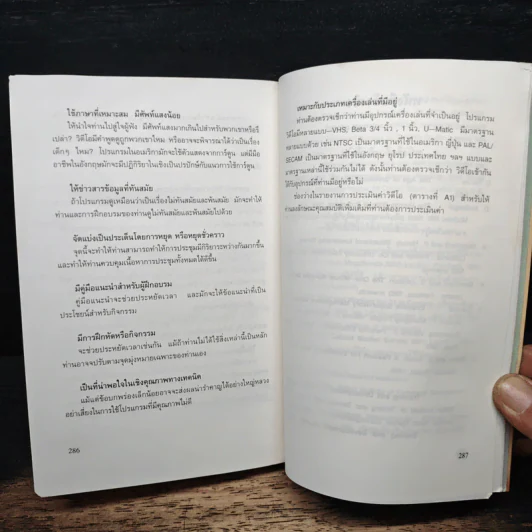 ใช้ภาษาที่เหมาะสม มีศัพท์แสงน้อย
ให้นำใจท่านไปสู่ใจผู้ฟัง มีศัพท์แสงมากเกินไปสำหรับพวกเขาหรือ
เปล่า? วิดีโอมีคำพูดดูถูกพวกเขาไหม หรืออาจจะพิจารณาได้ว่าเป็นเรื่อง
เด็กๆ ไหม? โปรแกรมในอเมริกามักจะใช้ตัวแสดงจากการ์ตูน แต่มีมือ
อาชีพในอังกฤษมักจะมีปฏิกิริยาในเชิงเป็นปรปักษ์กับแนวการใช้การ์ตูน
ให้ข่าวสารข้อมูลที่ทันสมัย
ถ้าโปรแกรมดูเหมือนว่าเป็นเรื่องไม่ทันสมัยและพ้นสมัย มักจะทำให้
ท่านและการฝึกอบรมของท่านดูไม่ทันสมัยและพ้นสมัยไปด้วย
จัดแบ่งเป็นประเด็นโดยการหยุด หรือหยุดชั่วคราว
จุดนี้จะทำให้ท่านสามารถทำให้การประชุมมีกิริยาระหว่างกันมากขึ้น
และทำให้ท่านควบคุมเนื้อหาการประชุมทั้งหมดได้ดีขึ้น
มีคู่มือแนะนำสำหรับผู้ฝึกอบรม
คู่มือแนะนำจะช่วยประหยัดเวลา และมักจะให้ข้อแนะนำที่เป็น
ประโยชน์สำหรับกิจกรรม
มีการฝึกหัดหรือกิจกรรม
จะช่วยประหยัดเวลาเช่นกัน แม้ถ้าท่านไม่ได้ใช้สิ่งเหล่านี้เป็นหลัก
ท่านอาจปรับตามจุดมุ่งหมายเฉพาะของท่านเอง
เป็นที่น่าพอใจในเชิงคุณภาพทางเทคนิค
แม้แต่ข้อบกพร่องเล็กน้อยอาจจะส่งผลน่ารำคาญได้อย่างใหญ่หลวง
อย่าเสี่ยงในการใช้โปรแกรมที่มีคุณภาพไม่ดี
286
เหมาะกับประเภทเครื่องเล่นที่มีอยู่
ท่านต้องตรวจเช็กว่าท่านมีอุปกรณ์เครื่องเล่นที่จำเป็นอยู่ โปรแกรม
วิดีโอมีหลายแบบ–VHS, Beta 3/4 นิ้ว , 1 นิ้ว, U–Matic มีมาตรฐาน
หลายแบบด้วย เช่น NTSC เป็นมาตรฐานที่ใช้ในอเมริกา ญี่ปุ่น และ PAL/
SECAM เป็นมาตรฐานที่ใช้ในอังกฤษ ยุโรป ประเทศไทย ฯลฯ แบบและ
มาตรฐานเหล่านี้ใช้ร่วมกันไม่ได้ ดังนั้นท่านต้องตรวจเช็กว่า วิดีโอเข้ากัน
ได้กับอุปกรณ์ที่ท่านมีอยู่หรือไม่
ช่องว่างในรายงานการประเมินค่าวิดีโอ (ตารางที่ A1) สำหรับให้
ท่านลงลักษณะคุณสมบัติเพิ่มเติมที่ท่านต้องการประเมินค่า
287